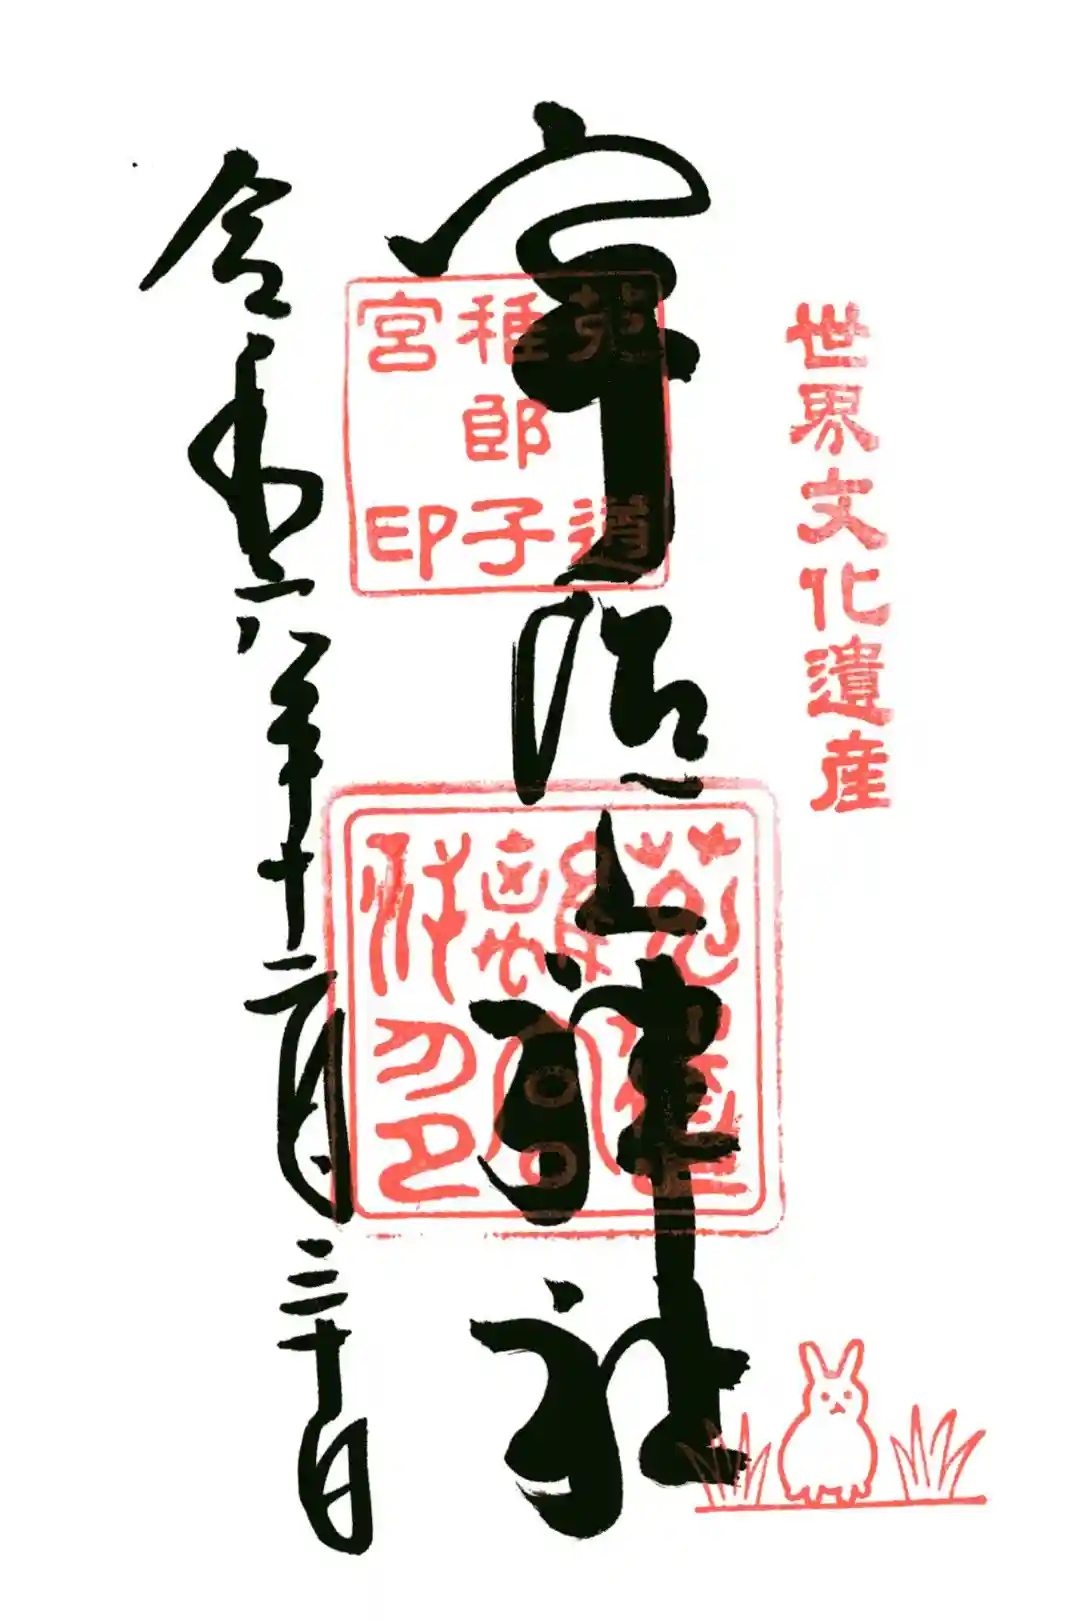 世界文化遺産
宇治上神社
菟道
稚郎子
宮印
令和六年十二月三十日